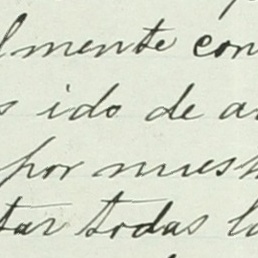 lmente con
s ido de a
por nuest
tar todas l